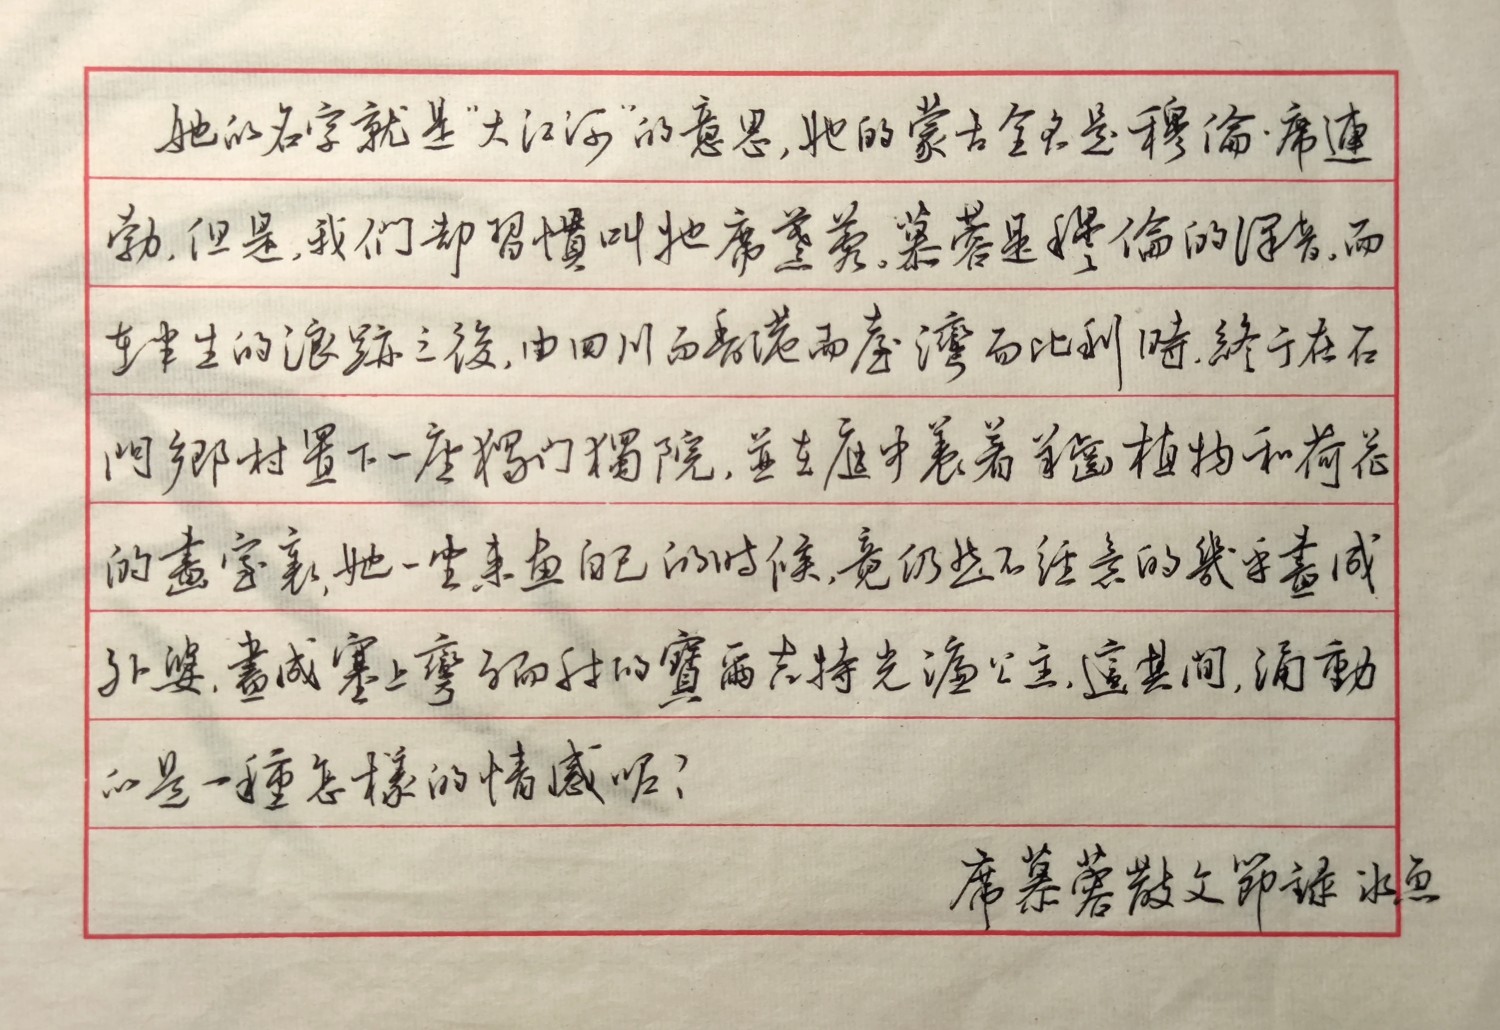 她的名字就是“大江河”的意思，她的蒙古全名是穆倫·席連
勃，但是，我們却習慣叫她席慕蓉。慕蓉是穆倫的譯音。而
在半生的浪跡之後，由四川而香港而臺灣而比利時，終于在石
門鄉村置下一座獨門獨院，並在庭中養着羊齒植物和荷花
的畫室裏，她一坐來畫自己的時候，竟仍然不經意的幾乎畫成
外婆，畫成塞上彎弓而射的寶爾吉特光濂公主，這其間，涌動
的是一種怎樣的情感呢？
席慕蓉散文節錄 冰魚